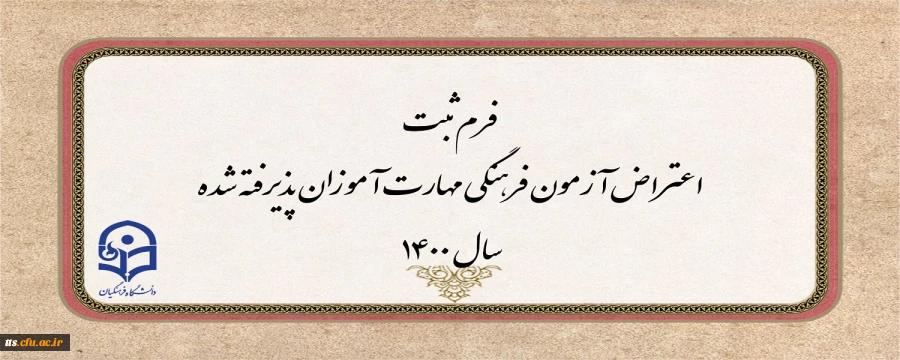 فرم ثبت
اعتراض آزمون فرهنگی مهارت آموزان پذیرفته شده
سال ۱۴۰۰
دانشگاه فرهنگیان
tts.cfu.ac.ir